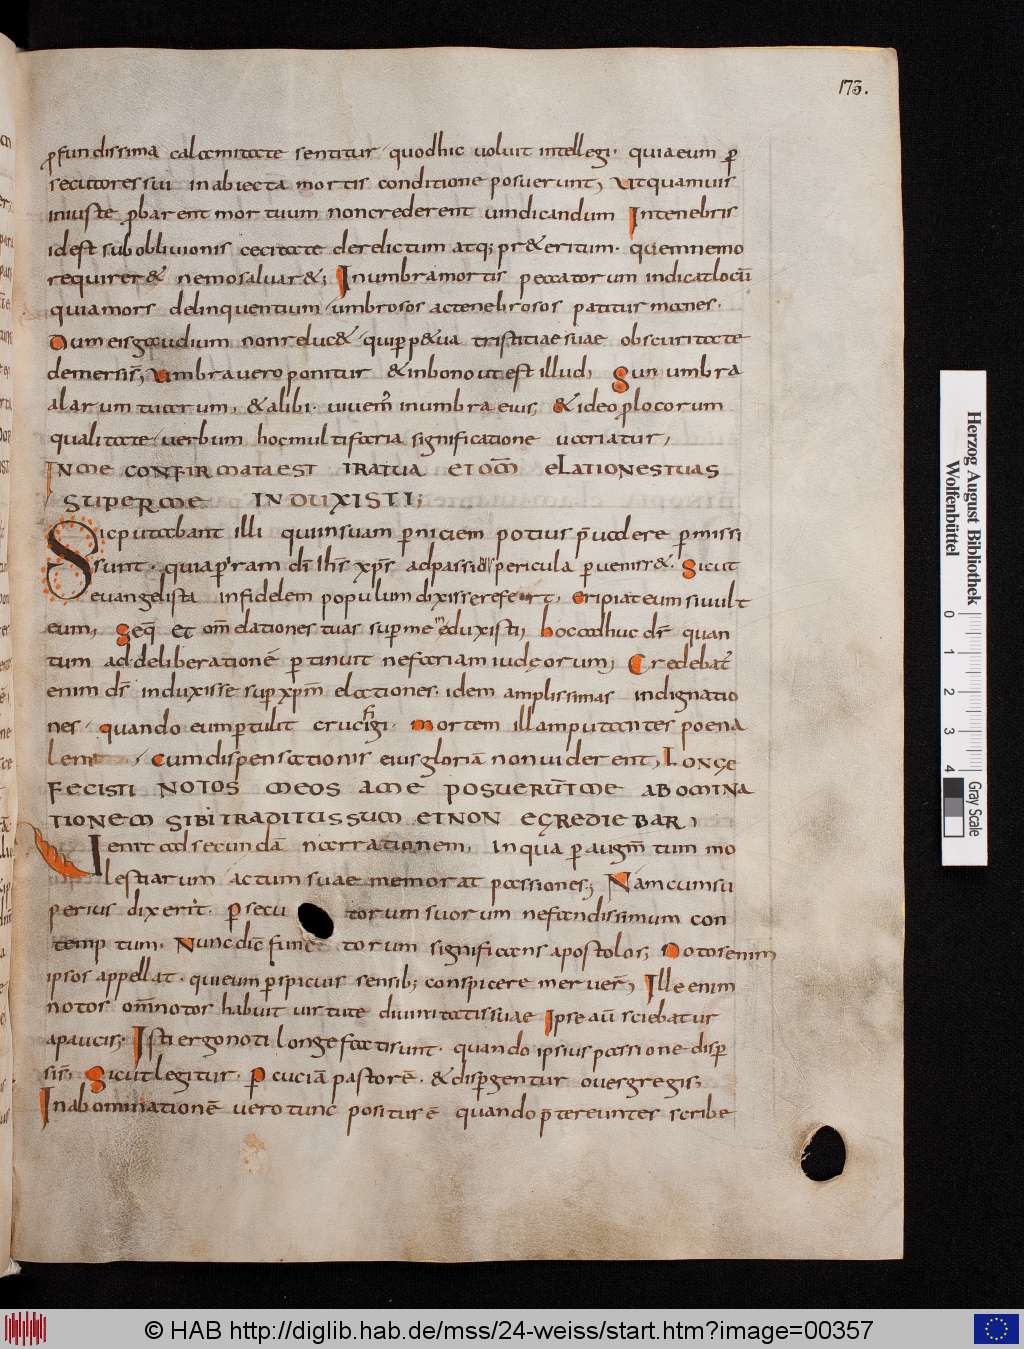 173.
ꝓfundissima calamitate sentitur quodhic uoluit intellegi· quiaeum ꝑ
secutoressui inabiecta mortis conditione posuerunt, Utquamuis
iniuste ꝓbarent mortuum noncrederent uindicandum Intenebris
idest suboblivionis cecitate derelictum atq; pr&eritum· quemnemo
requirer& nemosaluar&; Inumbramortis peccatorum indicatlocū
quiamors delinquentium umbrosos actenebrosos patitur manes·
Dum eisgaudium nonreduc& quiꝑp&ua tristitiaesuae obscuritate
demersis̄; Umbrauero ponitur &inbono utest illud, Sub umbra
alarum tuarum, &alibi· uiuem̄ inumbra eius, &ideo ꝓlocorum
qualitate uerbum hocmultifaria significatione uariatur,
INME CONFIRMATAEST IRATUA ETOM̄ ELATIONESTUAS
SUPERME INDUXISTI;
Sicputabant illi quiinsuam ꝑniciem potius p̄uadere ꝑmissi
sunt· quiaꝑiram dn̄i ihs̄ xp̄s adpassi pericula ꝑuenir&· Sicut
euangelista infidelem populum dixisserefert, eripiateum siuult
eum, Seq̄ et om̄ elationes tuas suꝑme induxisti, hocadhuc dr̄ quan
tum addeliberationē ꝑtinuit nefariam iudęorum, Credebat̄
enim dn̄ induxisse suꝑxp̄m elationes· idem amplissimas indignatio
nes· quando eumꝑtulit crucifigi· mortem illamputantes poena
lem cumdispensationis eiusgloriā nonuiderent, LONGE
FECISTI NOTOS MEOS AME POSUERUN̄TME ABOMINA
TIONEM SIBI TRADITUSSUM ETNON EGREDIEBAR,
Uenit adsecundā narrationem, inqua ꝑaugm̄tum mo
lestiarum actumsuae memorat passiones; Namcumsu
perius dixerit· Persecutorumsuorum nefandissimum con
temptum, Nunc dic̄ funetorum significans apostolos; Notosenim
ipsos appellat· quieum ꝑspicuis sensib; conspicere meruer̄, Ille enim
notos om̄notos habuit uirtute diuinitatissuae Ipse aū sciebatur
apaucis; Isti ergonoti longefactisunt· quando ipsiuspassione disꝑ
sis̄· Sicutlegitur· Pcuciā pastorē· &disꝑgentur ouesgregis;
Inabominationē uero tunc positusē quando p̄tereuntes scribe
Herzog August Bibliothek
Wolfenbüttel
0 1 2 3 4
Gray Scale
© HAB http://diglib.hab.de/mss/24-weiss/start.htm?image=00357